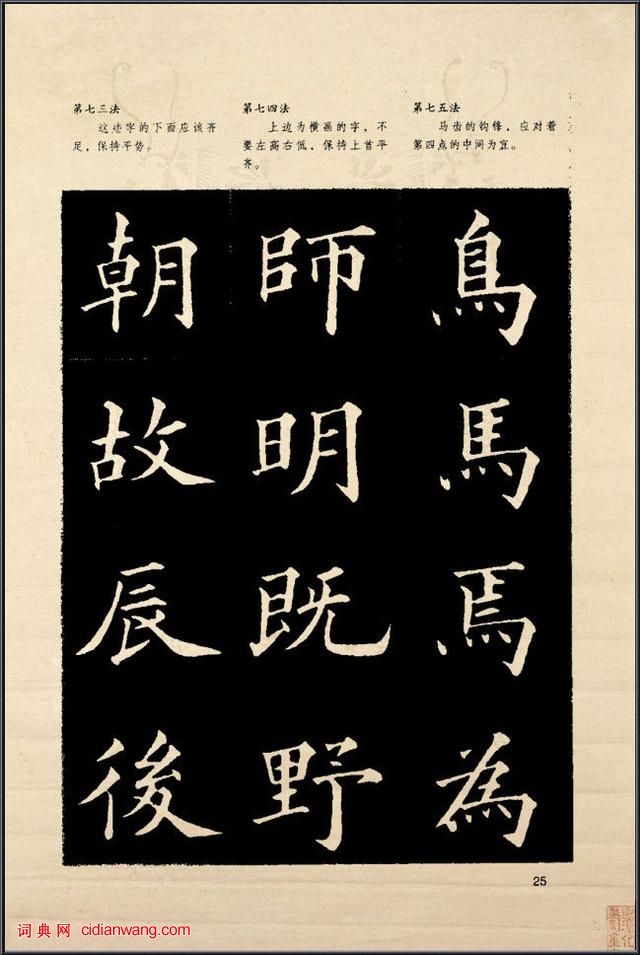 第七三法
这些字的下面应该齐
足，保持平势。
第七四法
上边为横画的字，不
要左高右低，保持上首平
齐。
第七五法
马齿的钩锋，应对着
第四点的中间为宜。
朝 師 鳥
故 明 馬
辰 既 焉
後 野 為
25
词典网 cidianwang.com